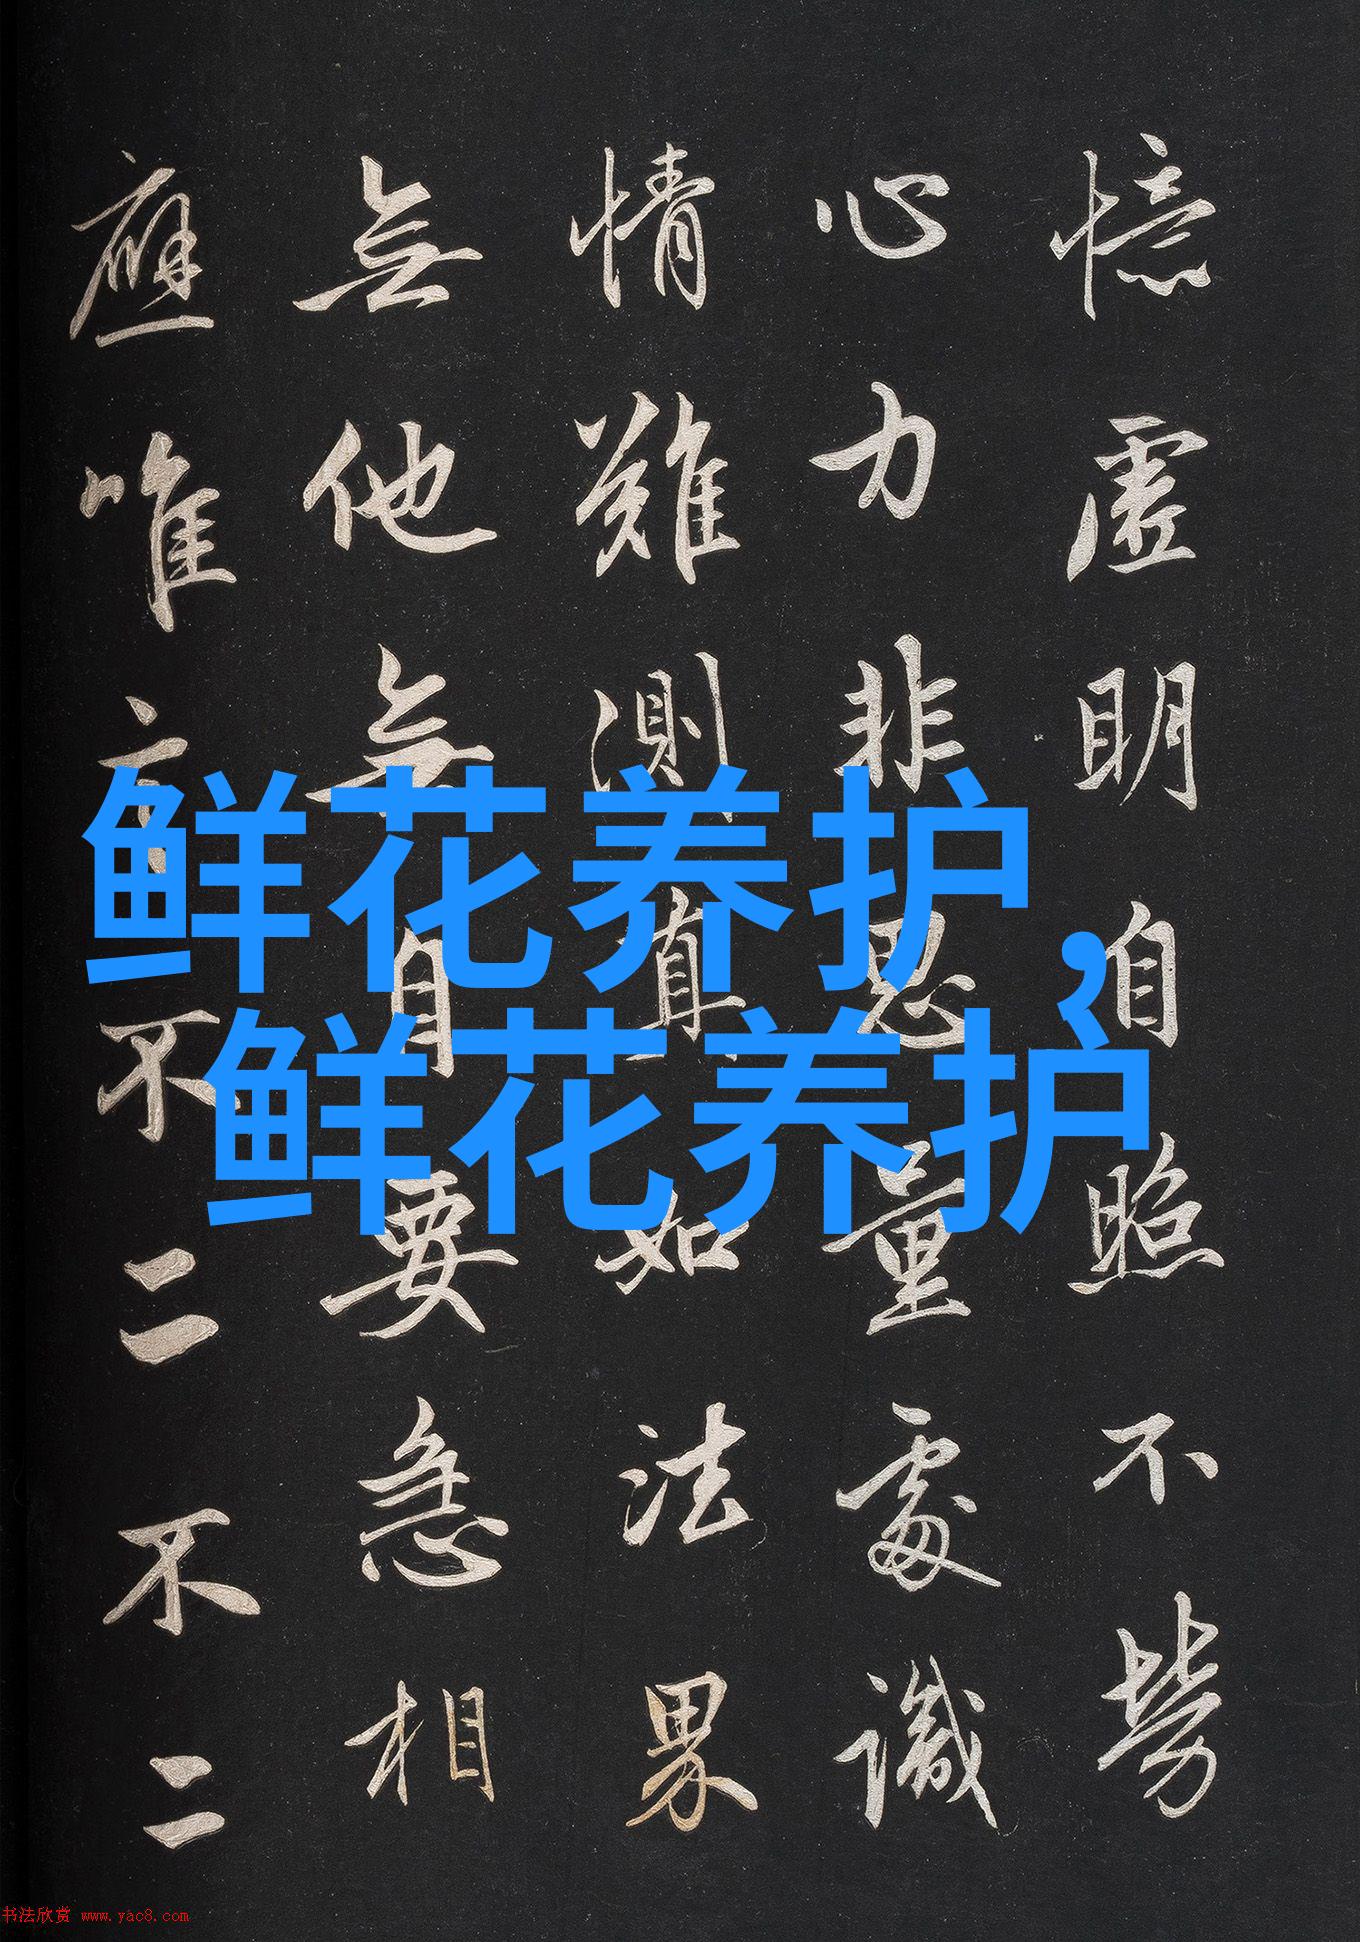 憶虛明自照不勞
心力非思量處識
情難測真如法界
無他無自要急相
應唯言不二不二
鲜花养护，
鲜花养护
书法欣赏 www.yac8.com